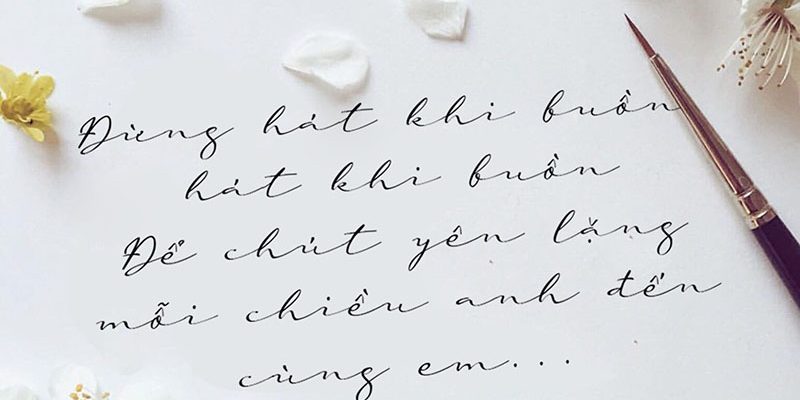 Đừng hát khi buồn
hát khi buồn
Để chút yên lặng
mỗi chiều anh đến
cùng em...